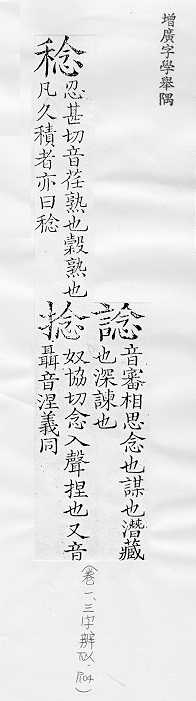 增廣字學舉隅
稔
忍甚切音荏熟也穀熟也
凡久積者亦曰稔
諗
音審相思念也謀也潛藏
也深諫也
捻
奴協切念入聲捏也又音
聶音涅義同
(卷一、三字辨似、P.104)